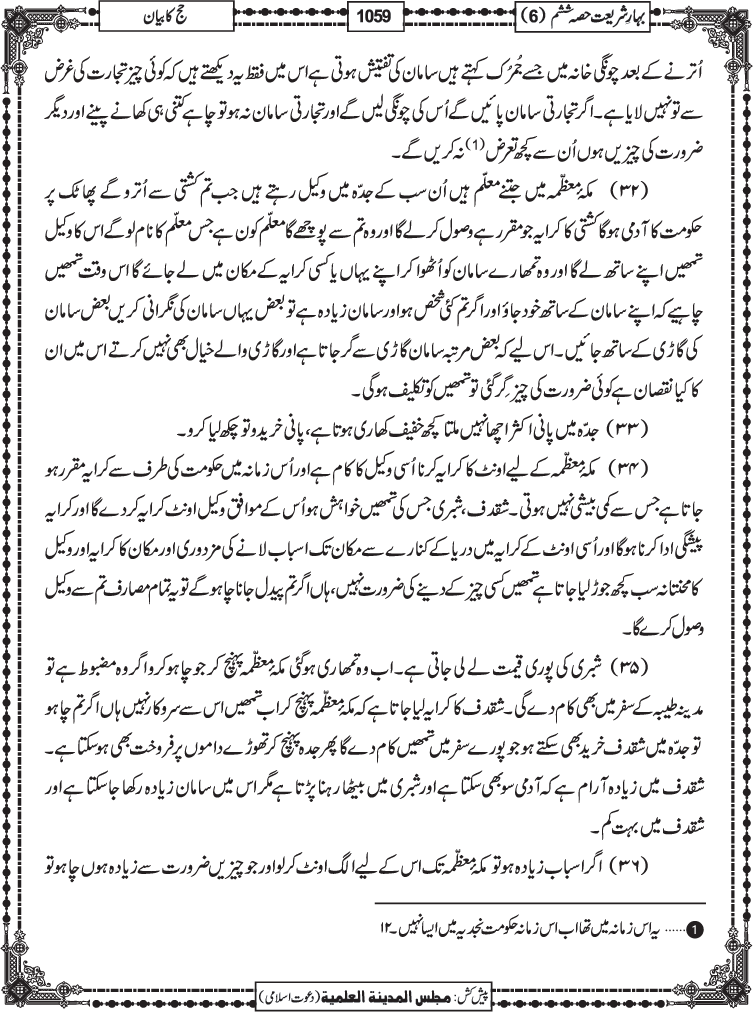 بہارِ شریعت حصہ ششم (6)
1059
حج کا بیان
اُترنے کے بعد چونگی خانہ میں جسے جُمرُک کہتے ہیں سامان کی تفتیش ہوتی ہے اس میں فقط یہ دیکھتے ہیں کہ کوئی چیز تجارت کی غرض
سے تو نہیں لایا ہے۔ اگر تجارتی سامان پائیں گے اُس کی چونگی لیں گے اور تجارتی سامان نہ ہو تو چاہے کتنی ہی کھانے پینے اور دیگر
ضرورت کی چیزیں ہوں اُن سے کچھ تعرض (1) نہ کریں گے۔
(۳۲) مکۂ معظّمہ میں جتنے معلّم ہیں اُن سب کے جدّہ میں وکیل رہتے ہیں جب تم کشتی سے اُترو گے پھاٹک پر
حکومت کا آدمی ہوگا کشتی کا کرایہ جو مقرر ہے وصول کرلے گا اور وہ تم سے پوچھے گا معلّم کون ہے جس معلّم کا نام لو گے اس کا وکیل
تمھیں اپنے ساتھ لے گا اور وہ تمھارے سامان کو اُٹھوا کر اپنے یہاں یا کسی کرایہ کے مکان میں لے جائے گا اس وقت تمھیں
چاہیے کہ اپنے سامان کے ساتھ خود جاؤ اور اگر تم کئی شخص ہو اور سامان زیادہ ہے تو بعض یہاں سامان کی نگرانی کریں بعض سامان
کی گاڑی کے ساتھ جائیں۔ اس لیے کہ بعض مرتبہ سامان گاڑی سے گر جاتا ہے اور گاڑی والے خیال بھی نہیں کرتے اس میں ان
کا کیا نقصان ہے کوئی ضرورت کی چیز گِر گئی تو تمھیں کو تکلیف ہوگی۔
(۳۳) جدّہ میں پانی اکثر اچھا نہیں ملتا کچھ خفیف کھاری ہوتا ہے، پانی خریدو تو چکھ لیا کرو۔
(۳۴) مکۂ معظّمہ کے لیے اونٹ کا کرایہ کرنا اُسی وکیل کا کام ہے اور اُس زمانہ میں حکومت کی طرف سے کرایہ مقرر ہو
جاتا ہے جس سے کمی بیشی نہیں ہوتی۔ شقدف، شبری جس کی تمھیں خواہش ہو اُس کے موافق وکیل اونٹ کرایہ کردے گا اور کرایہ
پیشگی ادا کرنا ہوگا اور اُسی اونٹ کے کرایہ میں دریا کے کنارے سے مکان تک اسباب لانے کی مزدوری اور مکان کا کرایہ اور وکیل
کا محنتانہ سب کچھ جوڑ لیا جاتا ہے تمھیں کسی چیز کے دینے کی ضرورت نہیں، ہاں اگر تم پیدل جانا چاہو گے تو یہ تمام مصارف تم سے وکیل
وصول کرے گا۔
(۳۵) شبری کی پوری قیمت لے لی جاتی ہے۔ اب وہ تمھاری ہوگئی مکۂ معظّمہ پہنچ کر جو چاہو کرو اگر وہ مضبوط ہے تو
مدینہ طیبہ کے سفر میں بھی کام دے گی۔ شقدف کا کرایہ لیا جاتا ہے کہ مکۂ معظّمہ پہنچ کر اب تمھیں اس سے سروکار نہیں ہاں اگر تم چاہو
تو جدّہ میں شقدف خرید بھی سکتے ہو جو پورے سفر میں تمھیں کام دے گا پھر جدہ پہنچ کر تھوڑے داموں پر فروخت بھی ہوسکتا ہے۔
شقدف میں زیادہ آرام ہے کہ آدمی سو بھی سکتا ہے اور شبری میں بیٹھا رہنا پڑتا ہے مگر اس میں سامان زیادہ رکھا جاسکتا ہے اور
شقدف میں بہت کم۔
(۳۶) اگر اسباب زیادہ ہو تو مکۂ معظّمہ تک اس کے لیے الگ اونٹ کرلو اور جو چیزیں ضرورت سے زیادہ ہوں چاہو تو
1 ...... یہ اس زمانہ میں تھا اب اس زمانہ حکومت نجدیہ میں ایسا نہیں۔ ۱۲
پیش کش: مجلس المدینۃ العلمیۃ (دعوت اسلامی)